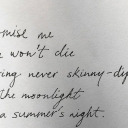 omise me
won't die
ing never skinny-dip
the moonlight
a summer's night.